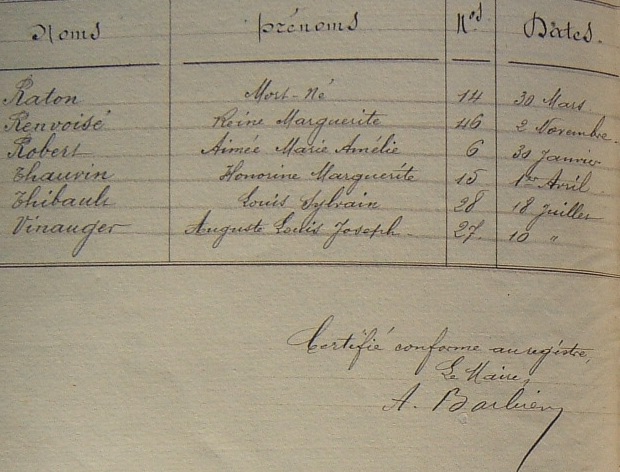 Noms prénoms Nos Dates.
Raton Mort-Né 14 30 Mars.
Renvoisé Reine Marguerite 46 2 Novembre.
Robert Aimée Marie Amélie 6 30 Janvier
Thauvin Honorine Marguerite 15 1er Avril.
Thibault Louis Sylvain 28 18 Juillet
Vinauger Auguste Louis Joseph 27. 10 "
Certifié conforme au registre,
Le Maire,
A. Barbier